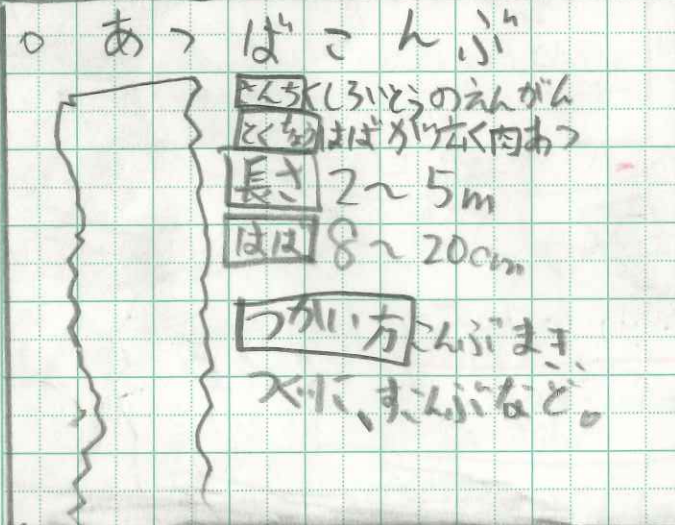 ○ あつばこんぶ
さんち くしろいとうのえんがん
とくちょう はばが広く肉あつ
長さ 2〜5m
はば 8〜20cm
つかい方 こんぶまき、
つくに、すこんぶなど。